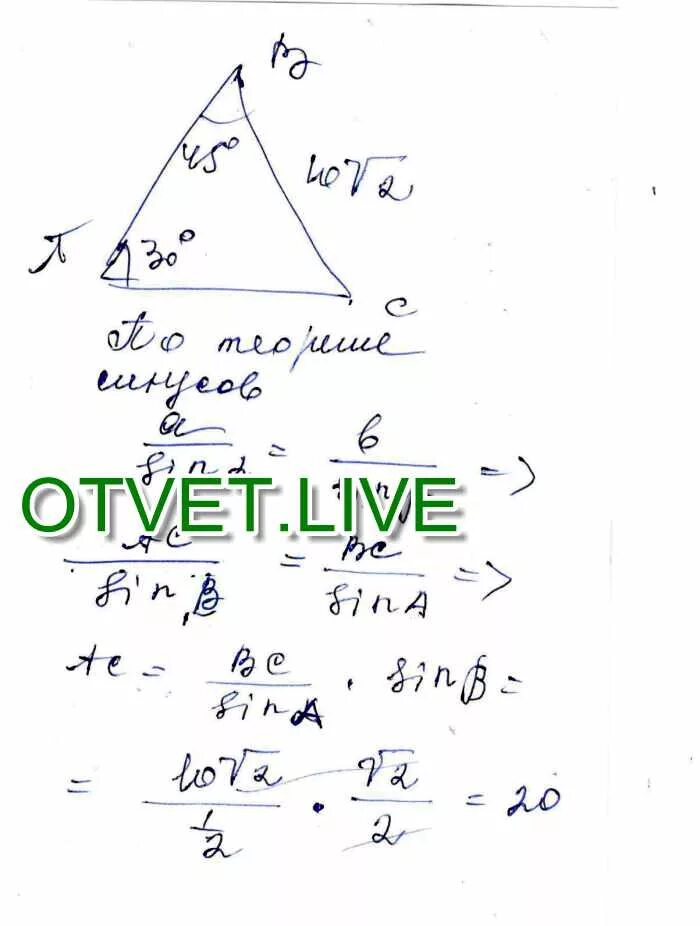 B
45°
10√2
A
30°
C
По теореме
синусов
a/sin α = b/sin β =>
OTVET.LIVE
AC/sin B = BC/sin A =>
AC = BC/sin A · sin B =
= 10√2/(1/2) · √2/2 = 20